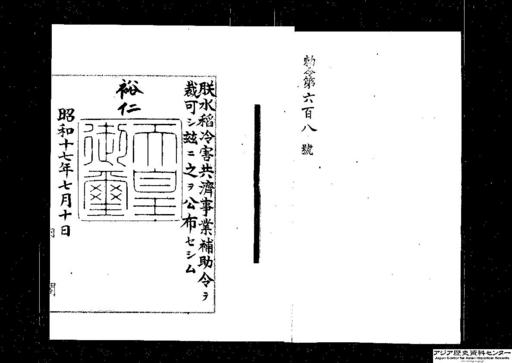 勅令第六百八號
朕水稻冷害共濟事業補助令ヲ
裁可シ玆ニ之ヲ公布セシム
裕仁
天皇
御璽
昭和十七年七月十日
アジア歴史資料センター
Japan Center for Asian Historical Records